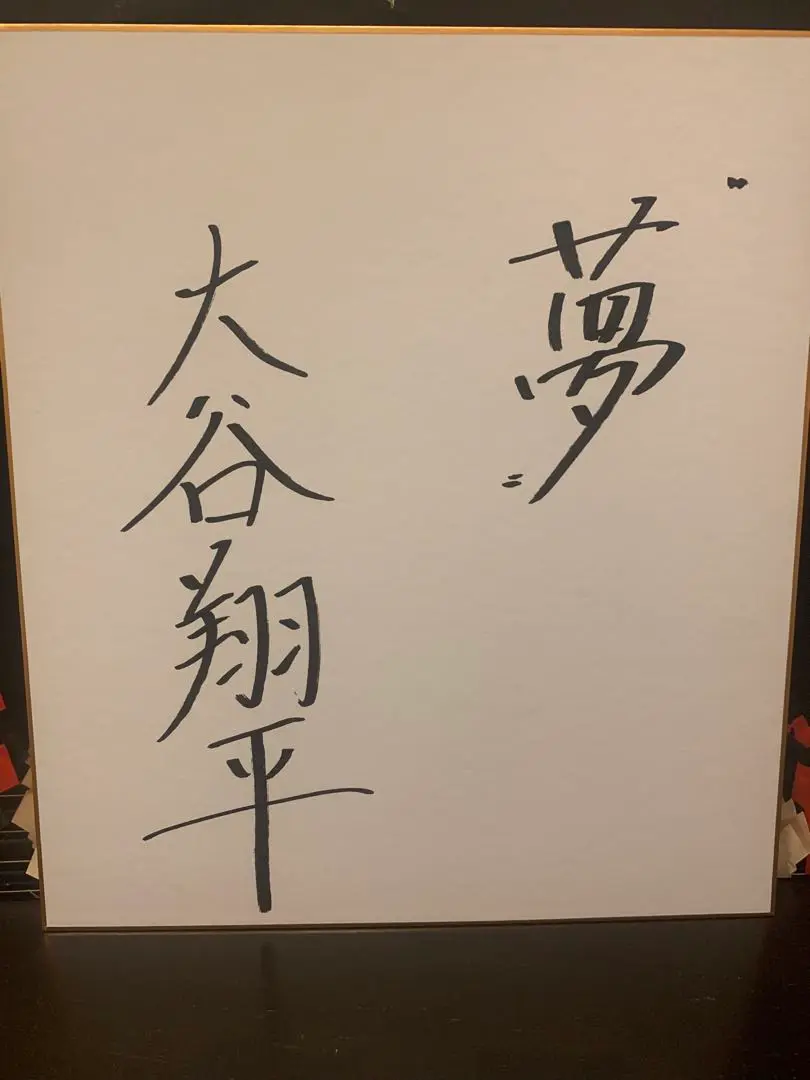 "夢"
大谷翔平